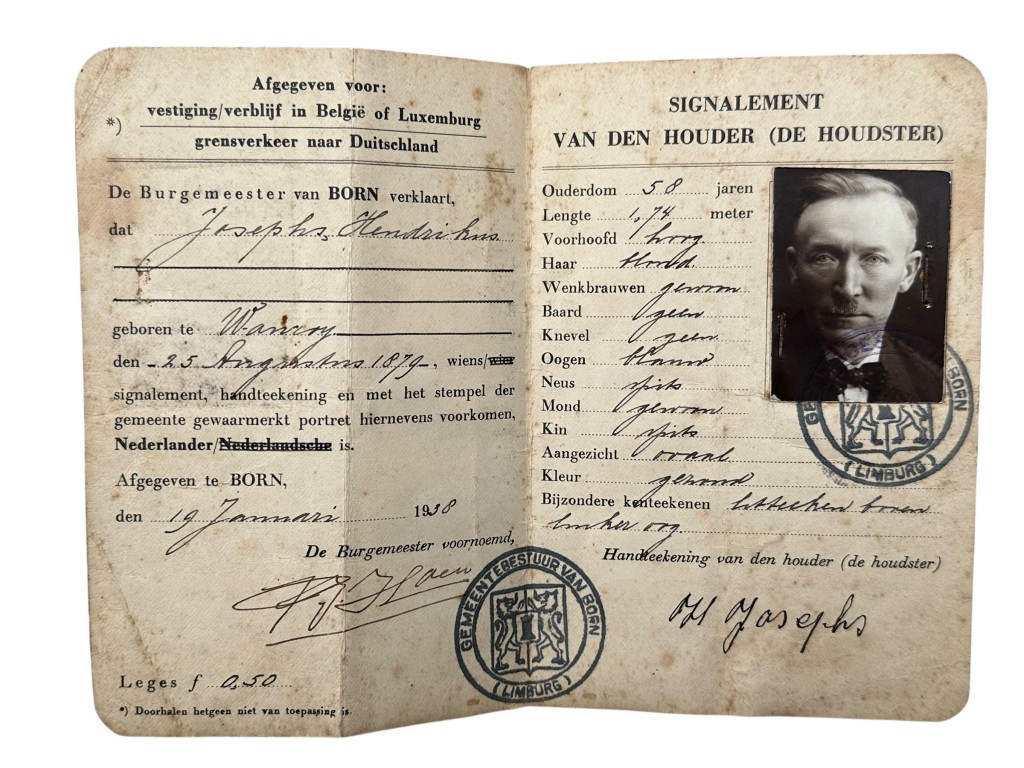 Afgegeven voor:
vestiging/verblijf in België of Luxemburg
*)
grensverkeer naar Duitschland
De Burgemeester van BORN verklaart,
dat Josephs, Hendrikus
geboren te Wanroy
den - 25 Augustus 1879 -, wiens/wier
signalement, handteekening en met het stempel der
gemeente gewaarmerkt portret hiernevens voorkomen,
Nederlander/Nederlandsche is.
Afgegeven te BORN,
den 19 Januari 1938
De Burgemeester voornoemd,
GEMEENTEBESTUUR VAN BORN
(LIMBURG)
Leges f 0,50
*) Doorhalen hetgeen niet van toepassing is.
SIGNALEMENT
VAN DEN HOUDER (DE HOUDSTER)
Ouderdom 58 jaren
Lengte 1,74 meter
Voorhoofd hoog
Haar blond
Wenkbrauwen gewoon
Baard geen
Knevel geen
Oogen blauw
Neus spits
Mond gewoon
Kin spits
Aangezicht ovaal
Kleur gezond
Bijzondere kenteekenen litteeken boven
linker oog
BORN
(LIMBURG)
Handteekening van den houder (de houdster)
H Josephs